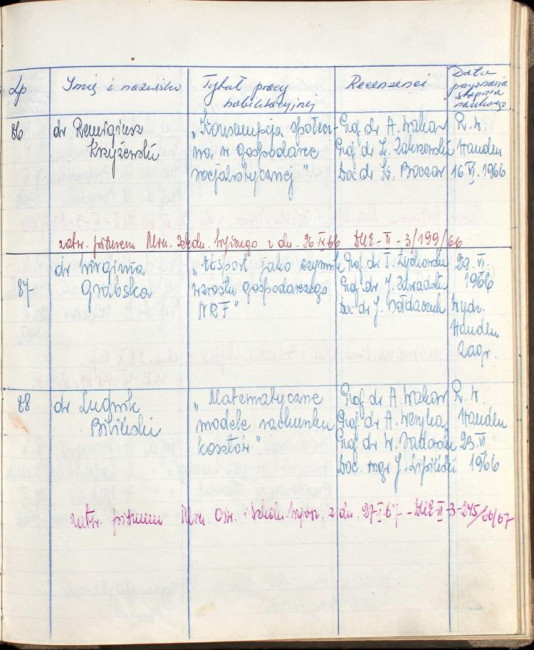 Lp
Imię i nazwisko
Tytuł pracy
habilitacyjnej
Recenzenci
Data
przyznania
stopnia
naukowego
86
dr Remigiusz
Krzyżewski
"Konsumpcja społecz-
na w gospodarce
socjalistycznej"
Prof. dr A. Wakar
Prof. dr L. Zalewski
Doc. dr Br.
R. W.
Handlu
16 VI. 1966
zatw. pismem Min. Szkoln. Wyższego z dn. 26 IX 66 DUE - II - 3/199/66
87
dr Wirginia
Grabska
"Eksport jako czynnik
wzrostu gospodarczego
NRF"
Prof. dr J.
Prof. dr J. Zawadzki
Doc. dr J. Sołdaczuk
29. VI.
1966
Wydz.
Handlu
Zagr.
88
dr Ludwik
Biliński
"Matematyczne
modele rachunku
kosztów"
Prof. dr A. Wakar
Prof. dr A.
Prof. dr W. Sadowski
Doc. mgr J. Lipiński
R. W.
Handlu
23. VI
1966
zatw. pismem Min. Ośw. i Szkoln. Wyższ. z dn. 27 I 67 - DUE-II-3-245/66/67